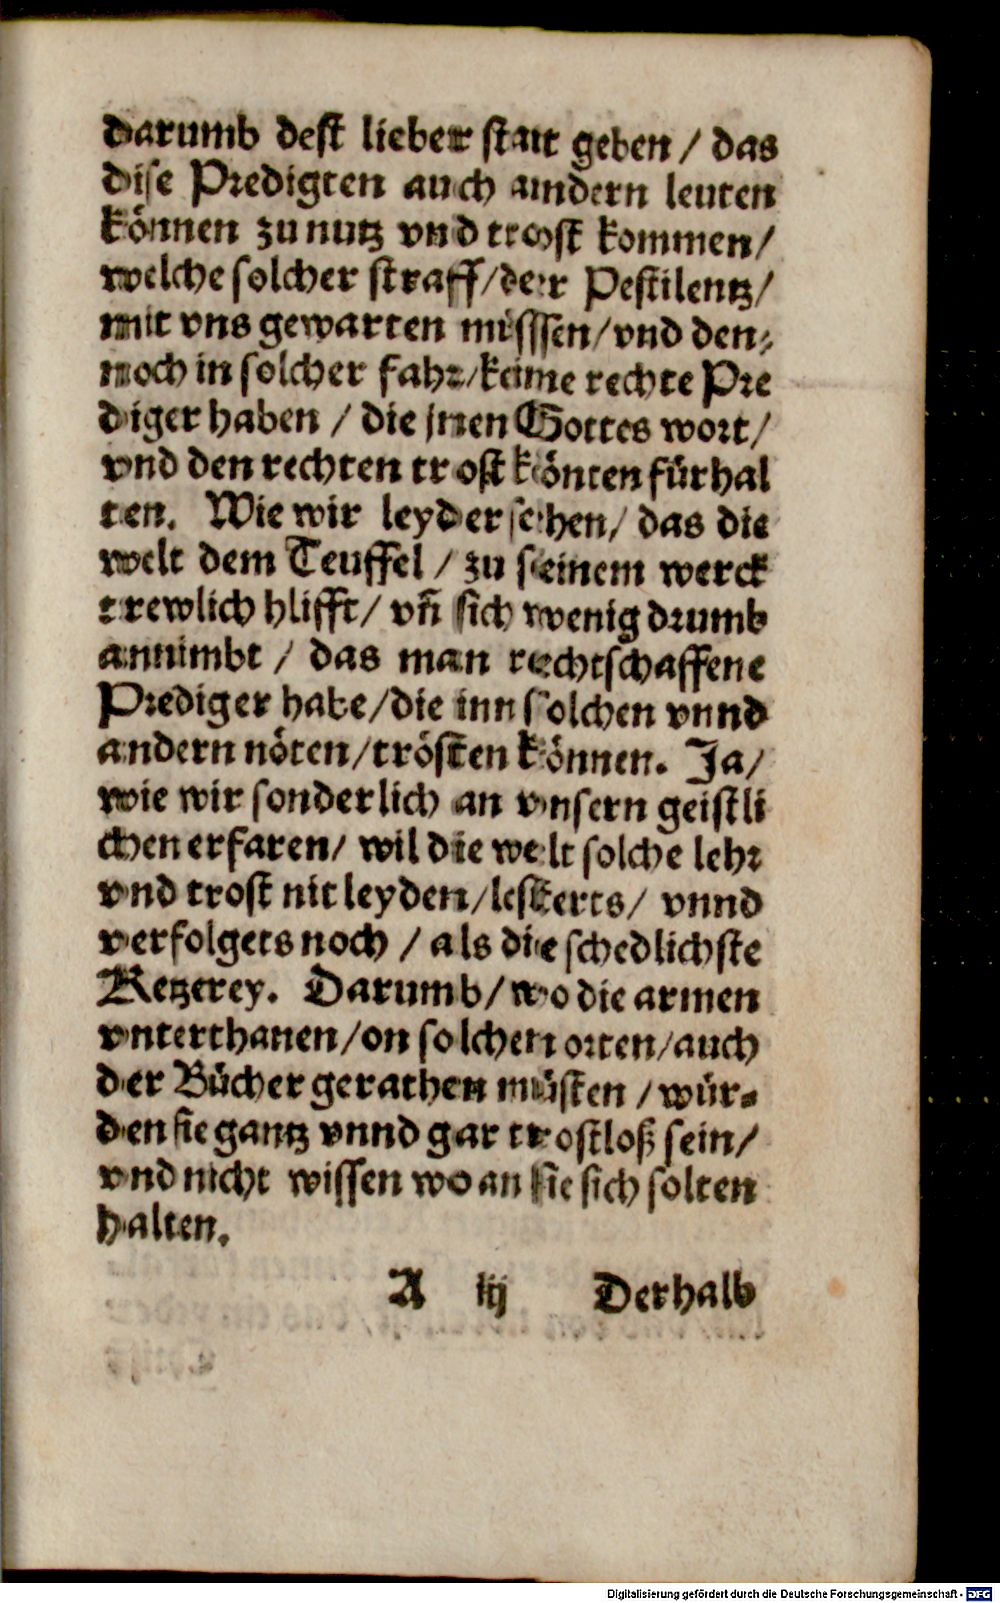 darumb dest lieber statt geben / das
dise Predigten auch andern leuten
können zu nutz vnd trost kommen /
welche solcher straff / der Pestilentz /
mit vns gewarten müsssen / vnd den⸗
noch in solcher fahr / keine rechte Pre
diger haben / die jnen Gottes wort /
vnd den rechten trost könten fürhal
ten. Wie wir leyder sehen / das die
welt dem Teuffel / zu seinem werck
trewlich hilfft / vn̄ sich wenig drumb
annimbt / das man rechtschaffene
Prediger habe / die inn solchen vnnd
andern nöten / trösten können. Ja /
wie wir sonderlich an vnsern geistli
chen erfaren / wil die welt solche lehr
vnd trost nit leyden / lesterts / vnnd
verfolgets noch / als die schedlichste
Ketzerey. Darumb / wo die armen
vnterthanen / on solchen orten / auch
der Bücher gerathen müsten / wür⸗
den sie gantz vnnd gar trostloß sein /
vnd nicht wissen wo an sie sich solten
halten.
A iij Derhalb
Digitalisierung gefördert durch die Deutsche Forschungsgemeinschaft - DFG